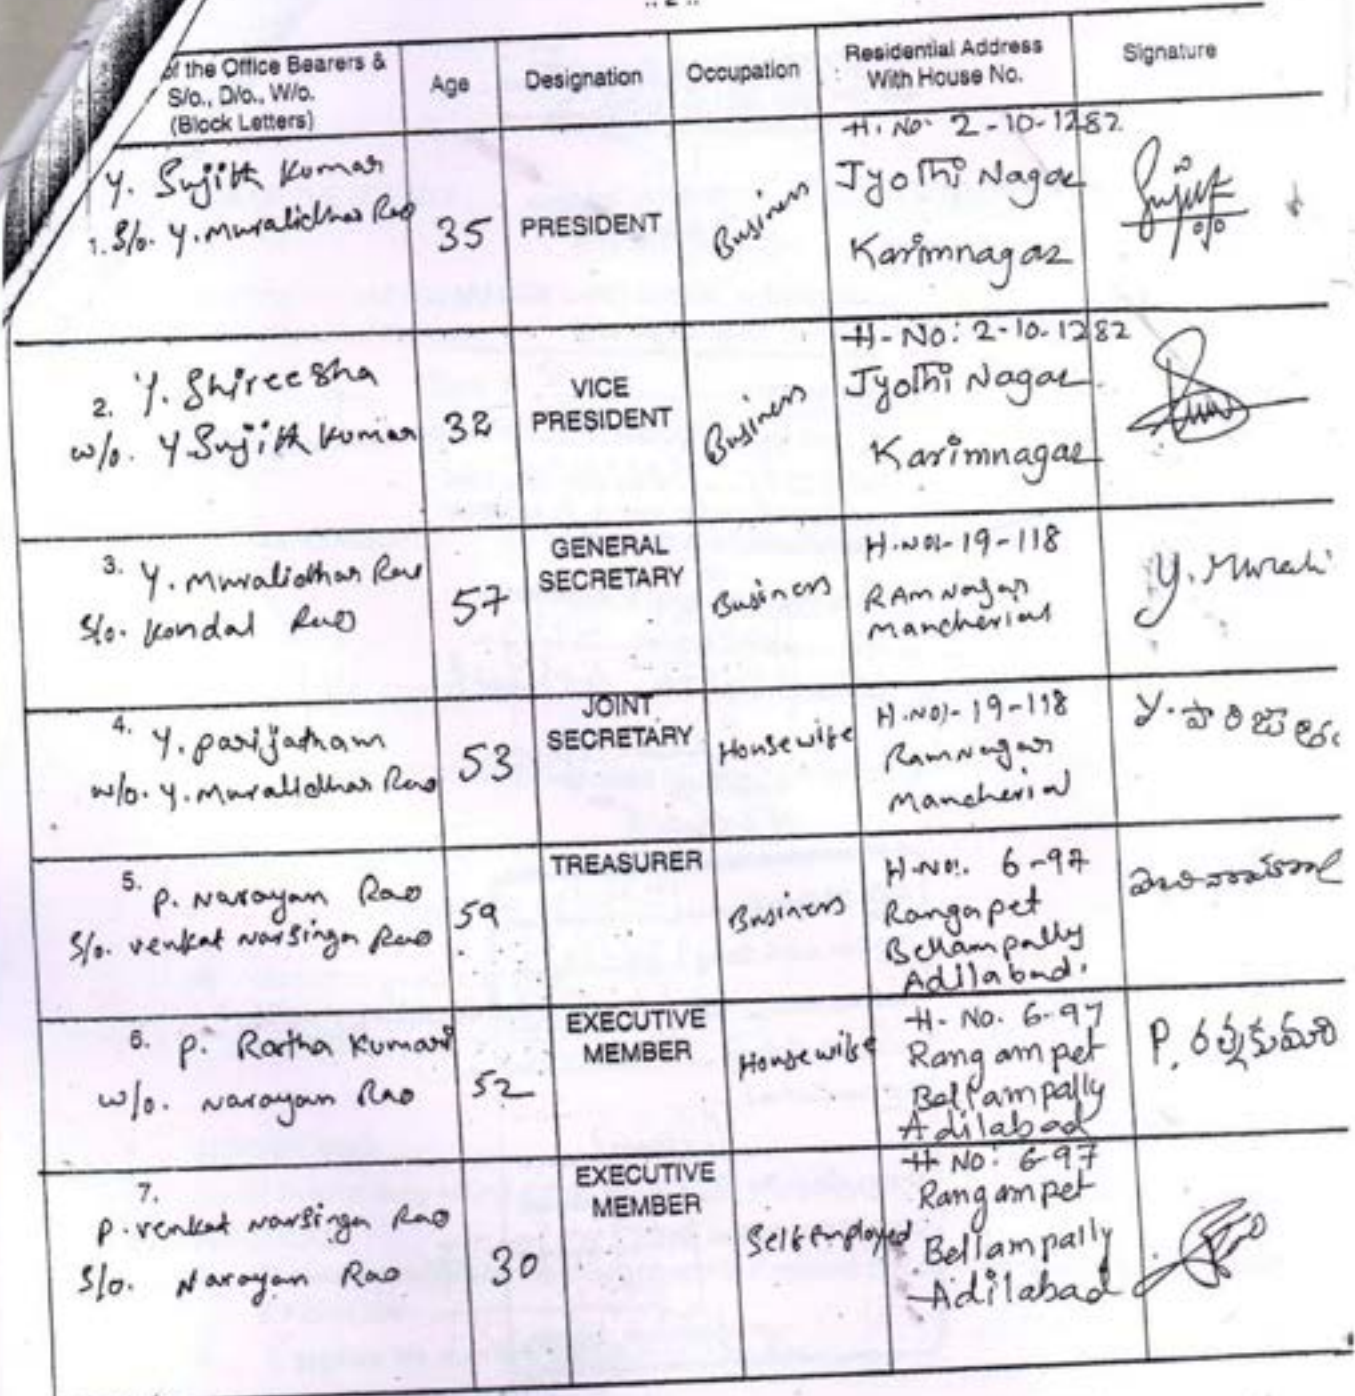 :: 2 ::
of the Office Bearers &
S/o., D/o., W/o.
(Block Letters)
Age
Designation
Occupation
Residential Address
With House No.
Signature
1. Y. Sujith Kumar
S/o. Y. Muralidhar Rao
35
PRESIDENT
Business
H. No. 2-10-1282
Jyothi Nagar
Karimnagar
2. Y. Shireesha
w/o. Y Sujith Kumar
32
VICE
PRESIDENT
Business
H-No: 2-10-1282
Jyothi Nagar
Karimnagar
3. Y. Muralidhar Rao
S/o. Kondal Rao
57
GENERAL
SECRETARY
Business
H.No:-19-118
RAMNagar
Mancherial
Y. Murali
4. Y. parijatham
w/o. Y. Muralidhar Rao
53
JOINT
SECRETARY
Housewife
H.No:-19-118
Ramnagar
Mancherial
5. P. Narayan Rao
S/o. venkat Narsinga Rao
59
TREASURER
Business
H.No:. 6-97
Rangapet
Bellampally
Adilabad.
6. P. Ratna Kumari
w/o. Narayan Rao
52
EXECUTIVE
MEMBER
Housewife
H. No. 6-97
Rangampet
Bellampally
Adilabad
P. రత్నకుమారి
7.
P. venkat Narsinga Rao
S/o. Narayan Rao
30
EXECUTIVE
MEMBER
Self employed
H No: 6-97
Rangampet
Bellampally
Adilabad